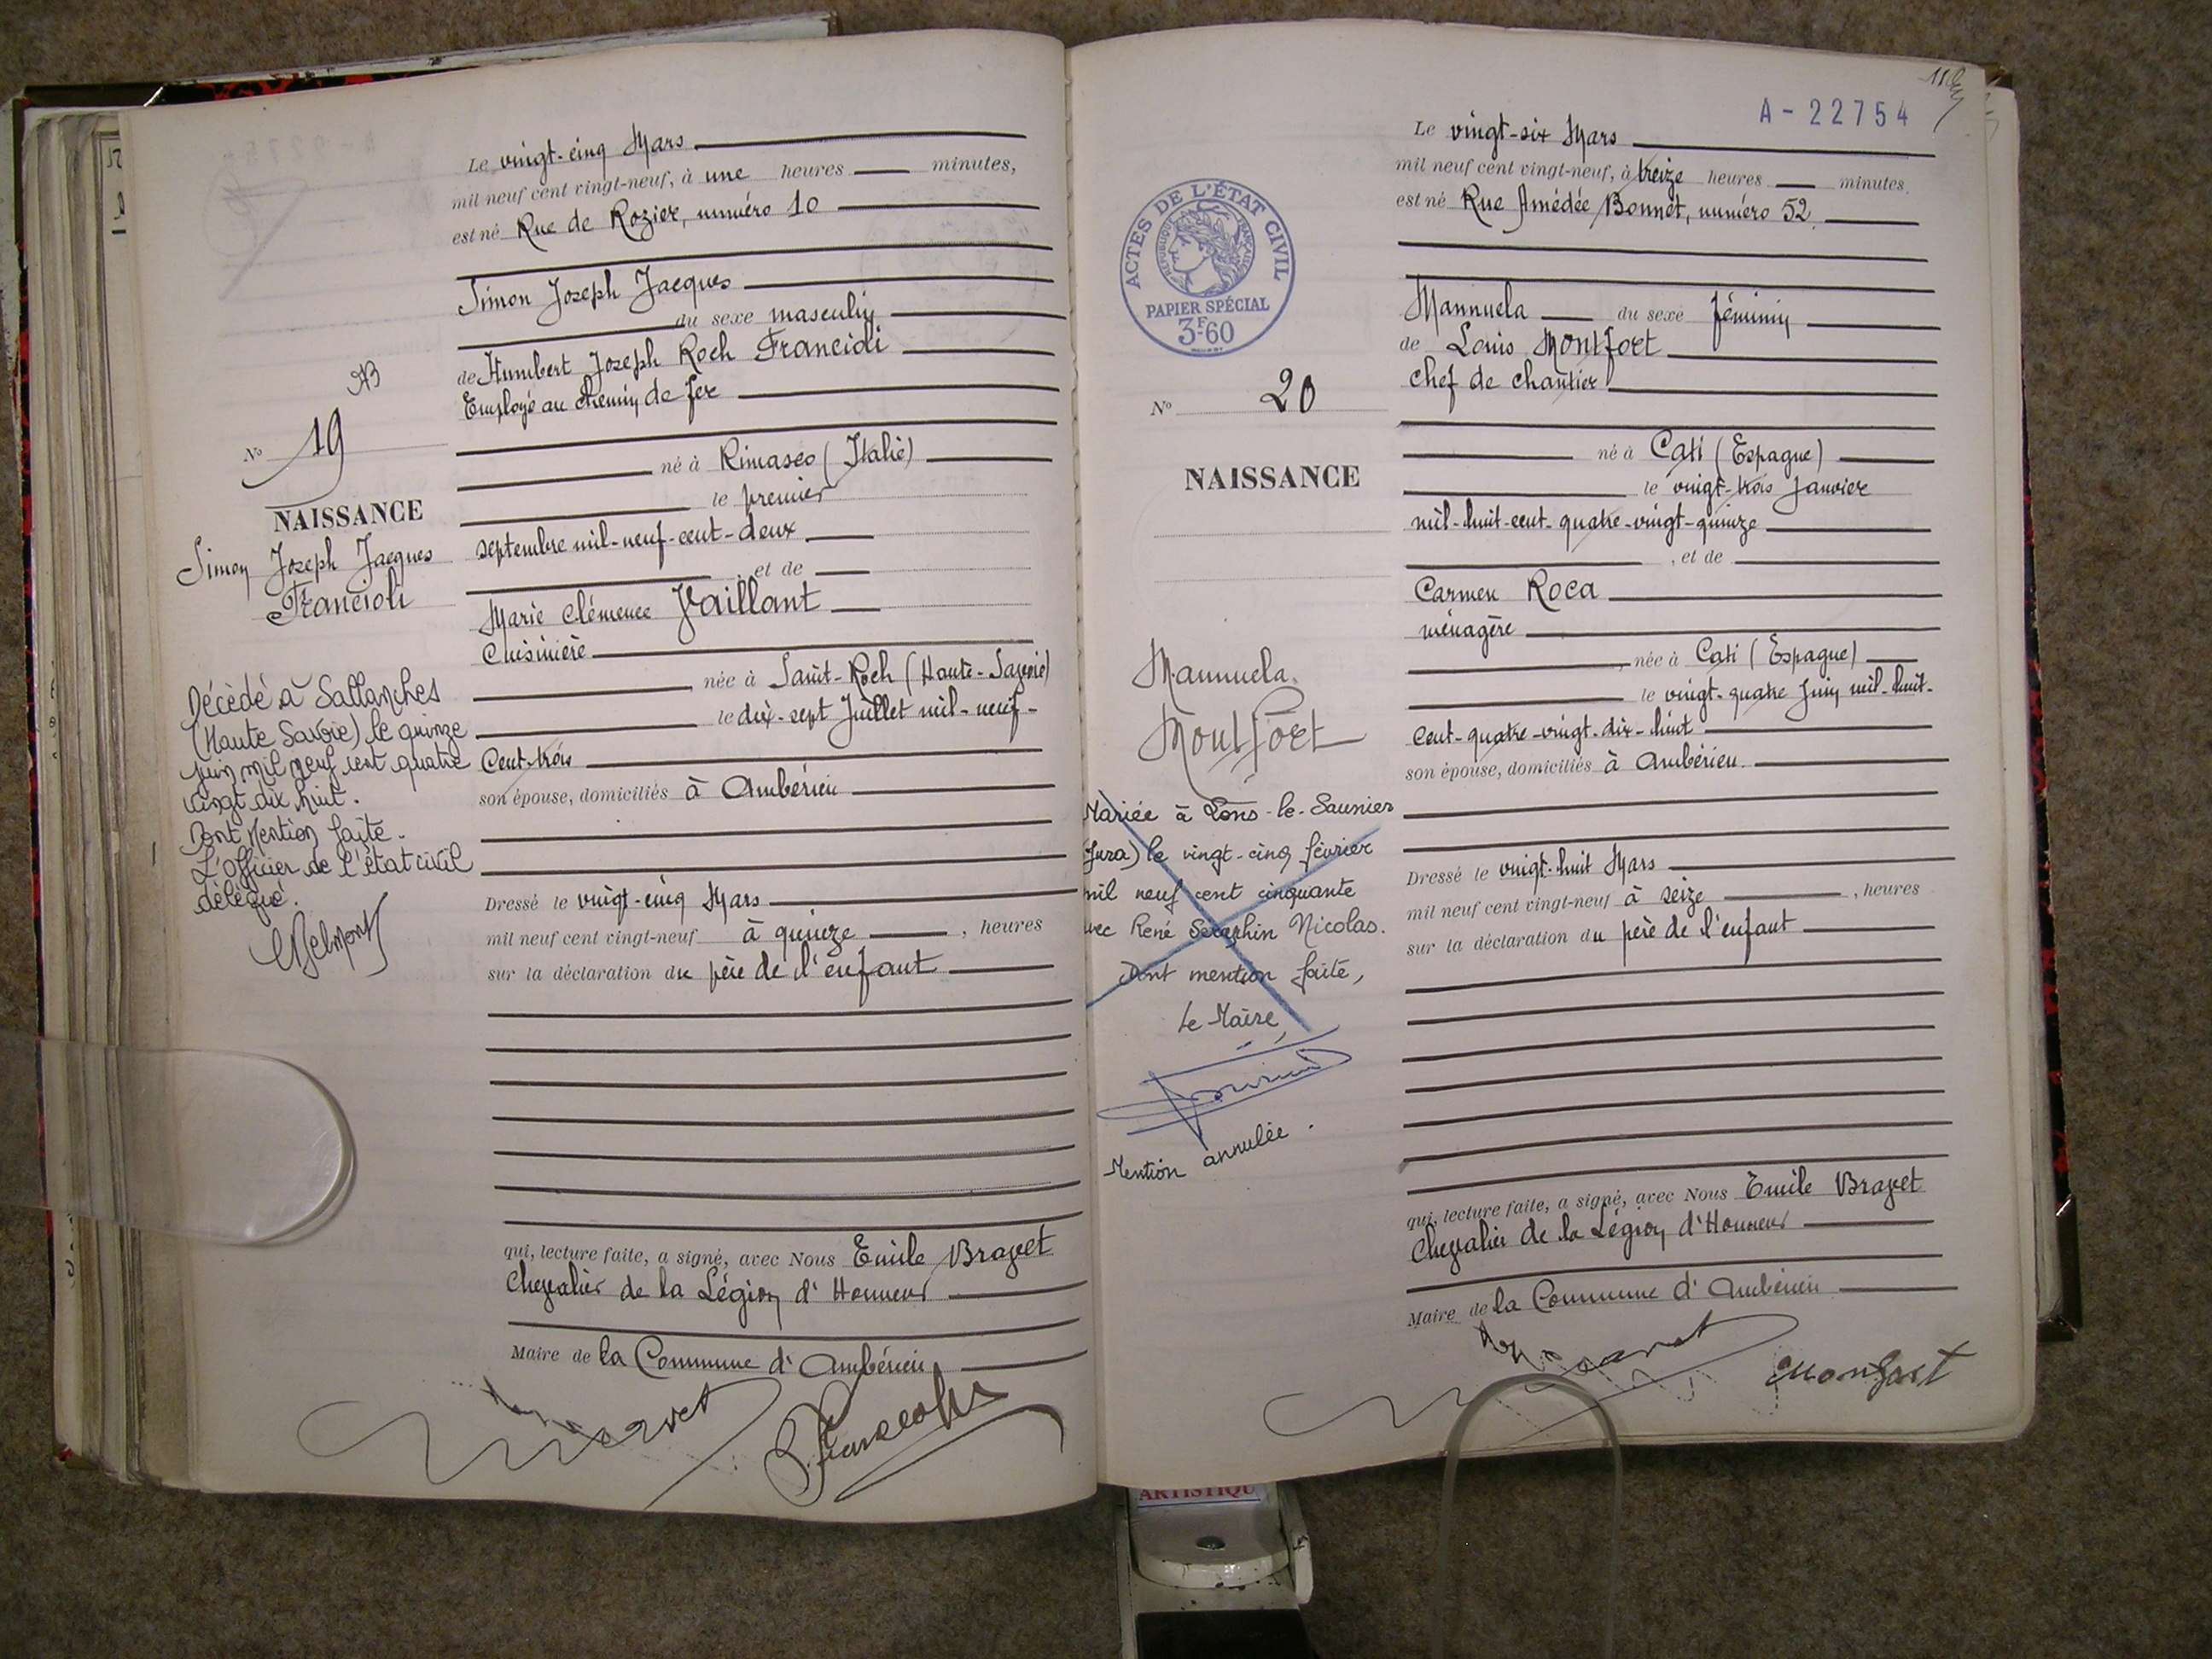 Le vingt-cinq Mars
mil neuf cent vingt-neuf, à une heures minutes,
est né Rue de Rozier, numéro 10
Simon Joseph Jacques
du sexe masculin
de Humbert Joseph Roch Francioli
Employé au chemin de fer
né à Rimasco (Italie)
le premier
septembre mil-neuf-cent-deux
et de
Marie Clémence Vaillant
Cuisinière
née à Saint-Roch (Haute-Savoie)
le dix-sept Juillet mil-neuf-
Cent-trois
son épouse, domiciliés à Ambérieu
Dressé le vingt-cinq Mars
mil neuf cent vingt-neuf à quinze , heures
sur la déclaration du père de l'enfant
qui, lecture faite, a signé, avec Nous Emile Bravet
Chevalier de la Légion d'Honneur
Maire de la Commune d'Ambérieu
Bravet
Francioli
No 19
NAISSANCE
Simon Joseph Jacques
Francioli
Décédé à Sallanches
(Haute Savoie) le quinze
juin mil neuf cent quatre
vingt dix huit.
Dont Mention faite.
L'Officier de l'état civil
délégué.
A-22754
Le vingt-six Mars
mil neuf cent vingt-neuf, à treize heures minutes.
est né Rue Amédée Bonnet, numéro 52.
Mannuela du sexe féminin
de Louis Montfort
chef de chantier
né à Cati (Espagne)
le vingt-trois Janvier
mil-huit-cent-quatre-vingt-quinze
, et de
Carmen Roca
ménagère
, née à Cati (Espagne)
le vingt-quatre Juin mil-huit-
Cent-quatre-vingt-dix-huit
son épouse, domiciliés à Ambérieu
Dressé le vingt-huit Mars
mil neuf cent vingt-neuf à seize , heures
sur la déclaration du père de l'enfant
qui, lecture faite, a signé, avec Nous Emile Bravet
Chevalier de la Légion d'Honneur
Maire de la Commune d'Ambérieu
Bravet
Monfort
ACTES DE L'ÉTAT CIVIL
RÉPUBLIQUE FRANÇAISE
PAPIER SPÉCIAL
3F60
No 20
NAISSANCE
Mannuela
Montfort
Mariée à Lons-le-Saunier
(Jura) le vingt-cinq février
mil neuf cent cinquante
avec René Séraphin Nicolas.
Dont mention faite,
Le Maire,
Mention annulée.
ARTISTIQU